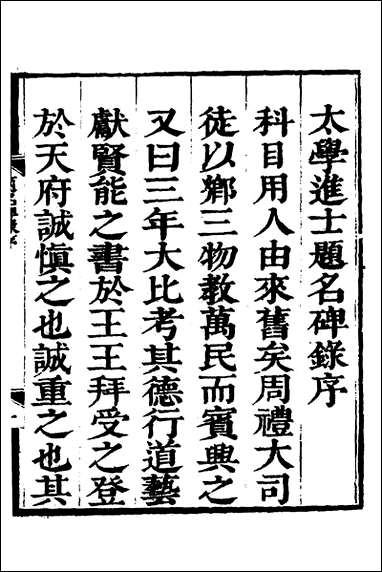 太學進士題名碑錄序
科目用人由來舊矣周禮大司
徒以鄉三物教萬民而賓興之
又曰三年大比考其德行道藝
獻賢能之書於王王拜受之登
於天府誠慎之也誠重之也其